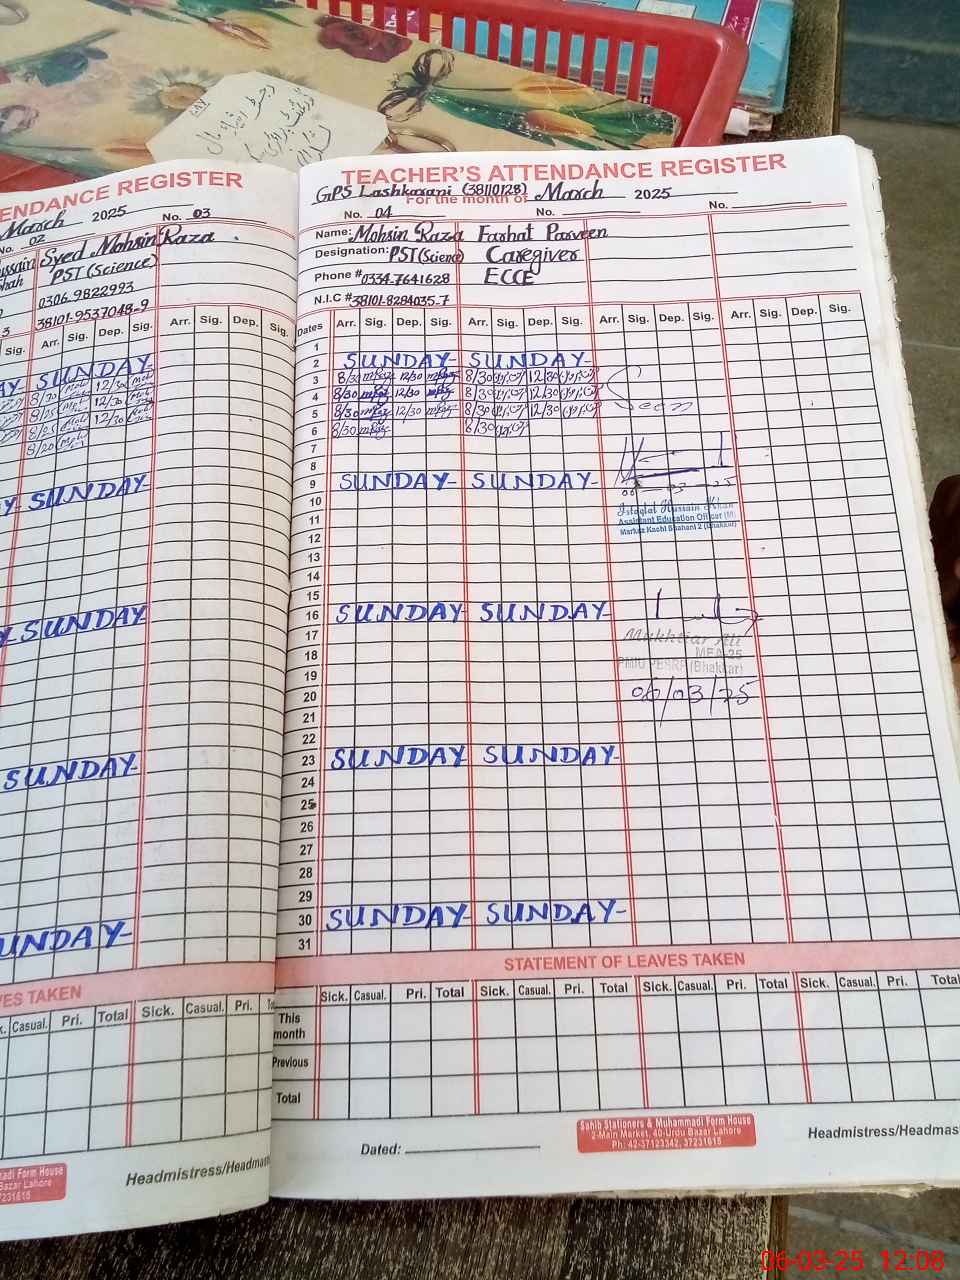 رجسٹر
ENDANCE REGISTER
March 2025 No. 03
No. 02
Syed Mohsin Raza
PST (Science)
0306-9822993
38101-9537048-9
Sig. Arr. Sig. Dep. Sig. Arr. Sig. Dep. Sig.
SUNDAY
8/30 12/30
8/25 12/30
8/25 12/30
8/20
SUNDAY
SUNDAY
SUNDAY
SUNDAY
ES TAKEN
Casual. Pri. Total Sick. Casual. Pri.
Headmistress/Headmast
adi Form House
Bazar Lahore
37231615
TEACHER'S ATTENDANCE REGISTER
GPS Lashkarani (38110128) March 2025
For the month of
No. 04 No. No.
Name: Mohsin Raza Farhat Parveen
Designation: PST (Science) Caregiver
Phone # 0334-7641628 ECCE
N.I.C # 38101-8284035-7
Dates Arr. Sig. Dep. Sig. Arr. Sig. Dep. Sig. Arr. Sig. Dep. Sig. Arr. Sig. Dep. Sig.
1
2 SUNDAY SUNDAY
3 8/30 12/30 8/30 12/30
4 8/30 12/30 8/30 12/30
5 8/30 12/30 8/30 12/30 Seen
6 8/30 8/30
7
8
9 SUNDAY SUNDAY
06-03-25
10
Hussain
11 Assistant Education Officer (M)
12 Markaz Kachi Shahani 2 (Bhakkar)
13
14
15
16 SUNDAY SUNDAY
17 Mukhtiar Ali
18 MEA-25
19 PMIU PESRP (Bhakkar)
20 06/03/25
21
22
23 SUNDAY SUNDAY
24
25
26
27
28
29
30 SUNDAY SUNDAY
31
STATEMENT OF LEAVES TAKEN
Sick. Casual. Pri. Total Sick. Casual. Pri. Total Sick. Casual. Pri. Total Sick. Casual. Pri. Total
This month
Previous
Total
Sahib Stationers & Muhammadi Form House
2-Main Market, 40-Urdu Bazar Lahore
Ph: 42-37123342, 37231615
Dated: Headmistress/Headmast
06-03-25 12:08